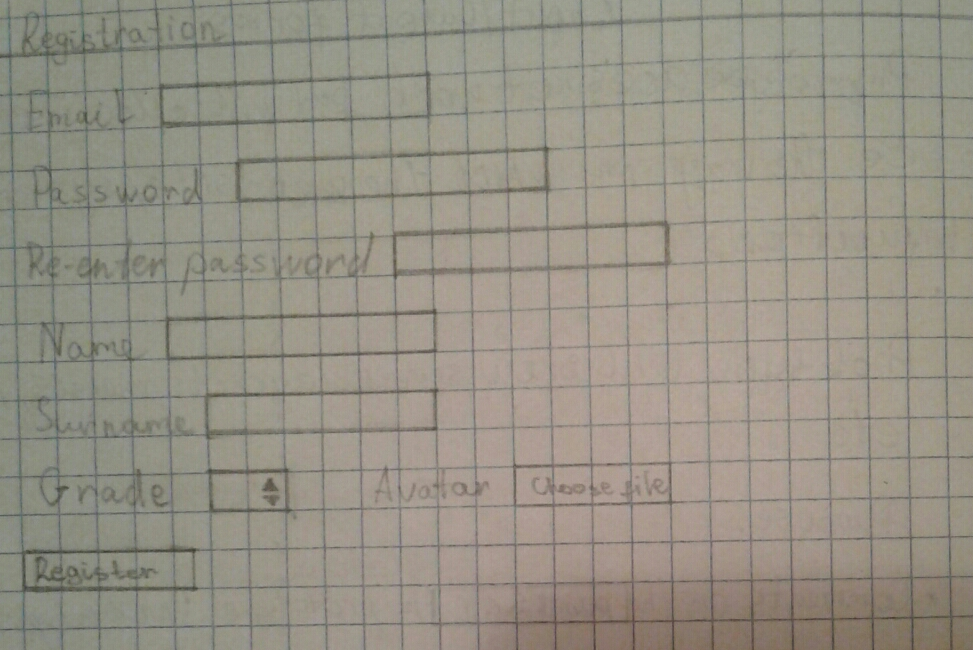 Registration
Email
Password
Re-enter password
Name
Surname
Grade Avatar Choose file
Register